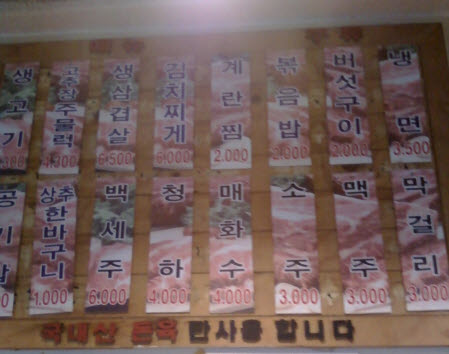 생고기
고추장주물럭 4,900
생삼겹살 6,500
김치찌게 6,000
계란찜 2,000
볶음밥 2,000
버섯구이 3,000
냉면 3,500
공기밥
상추한바구니 1,000
백세주 6,000
청하 4,000
매화수 4,000
소주 3,000
맥주 3,000
막걸리 3,000
국내산 돈육 만사용 합니다